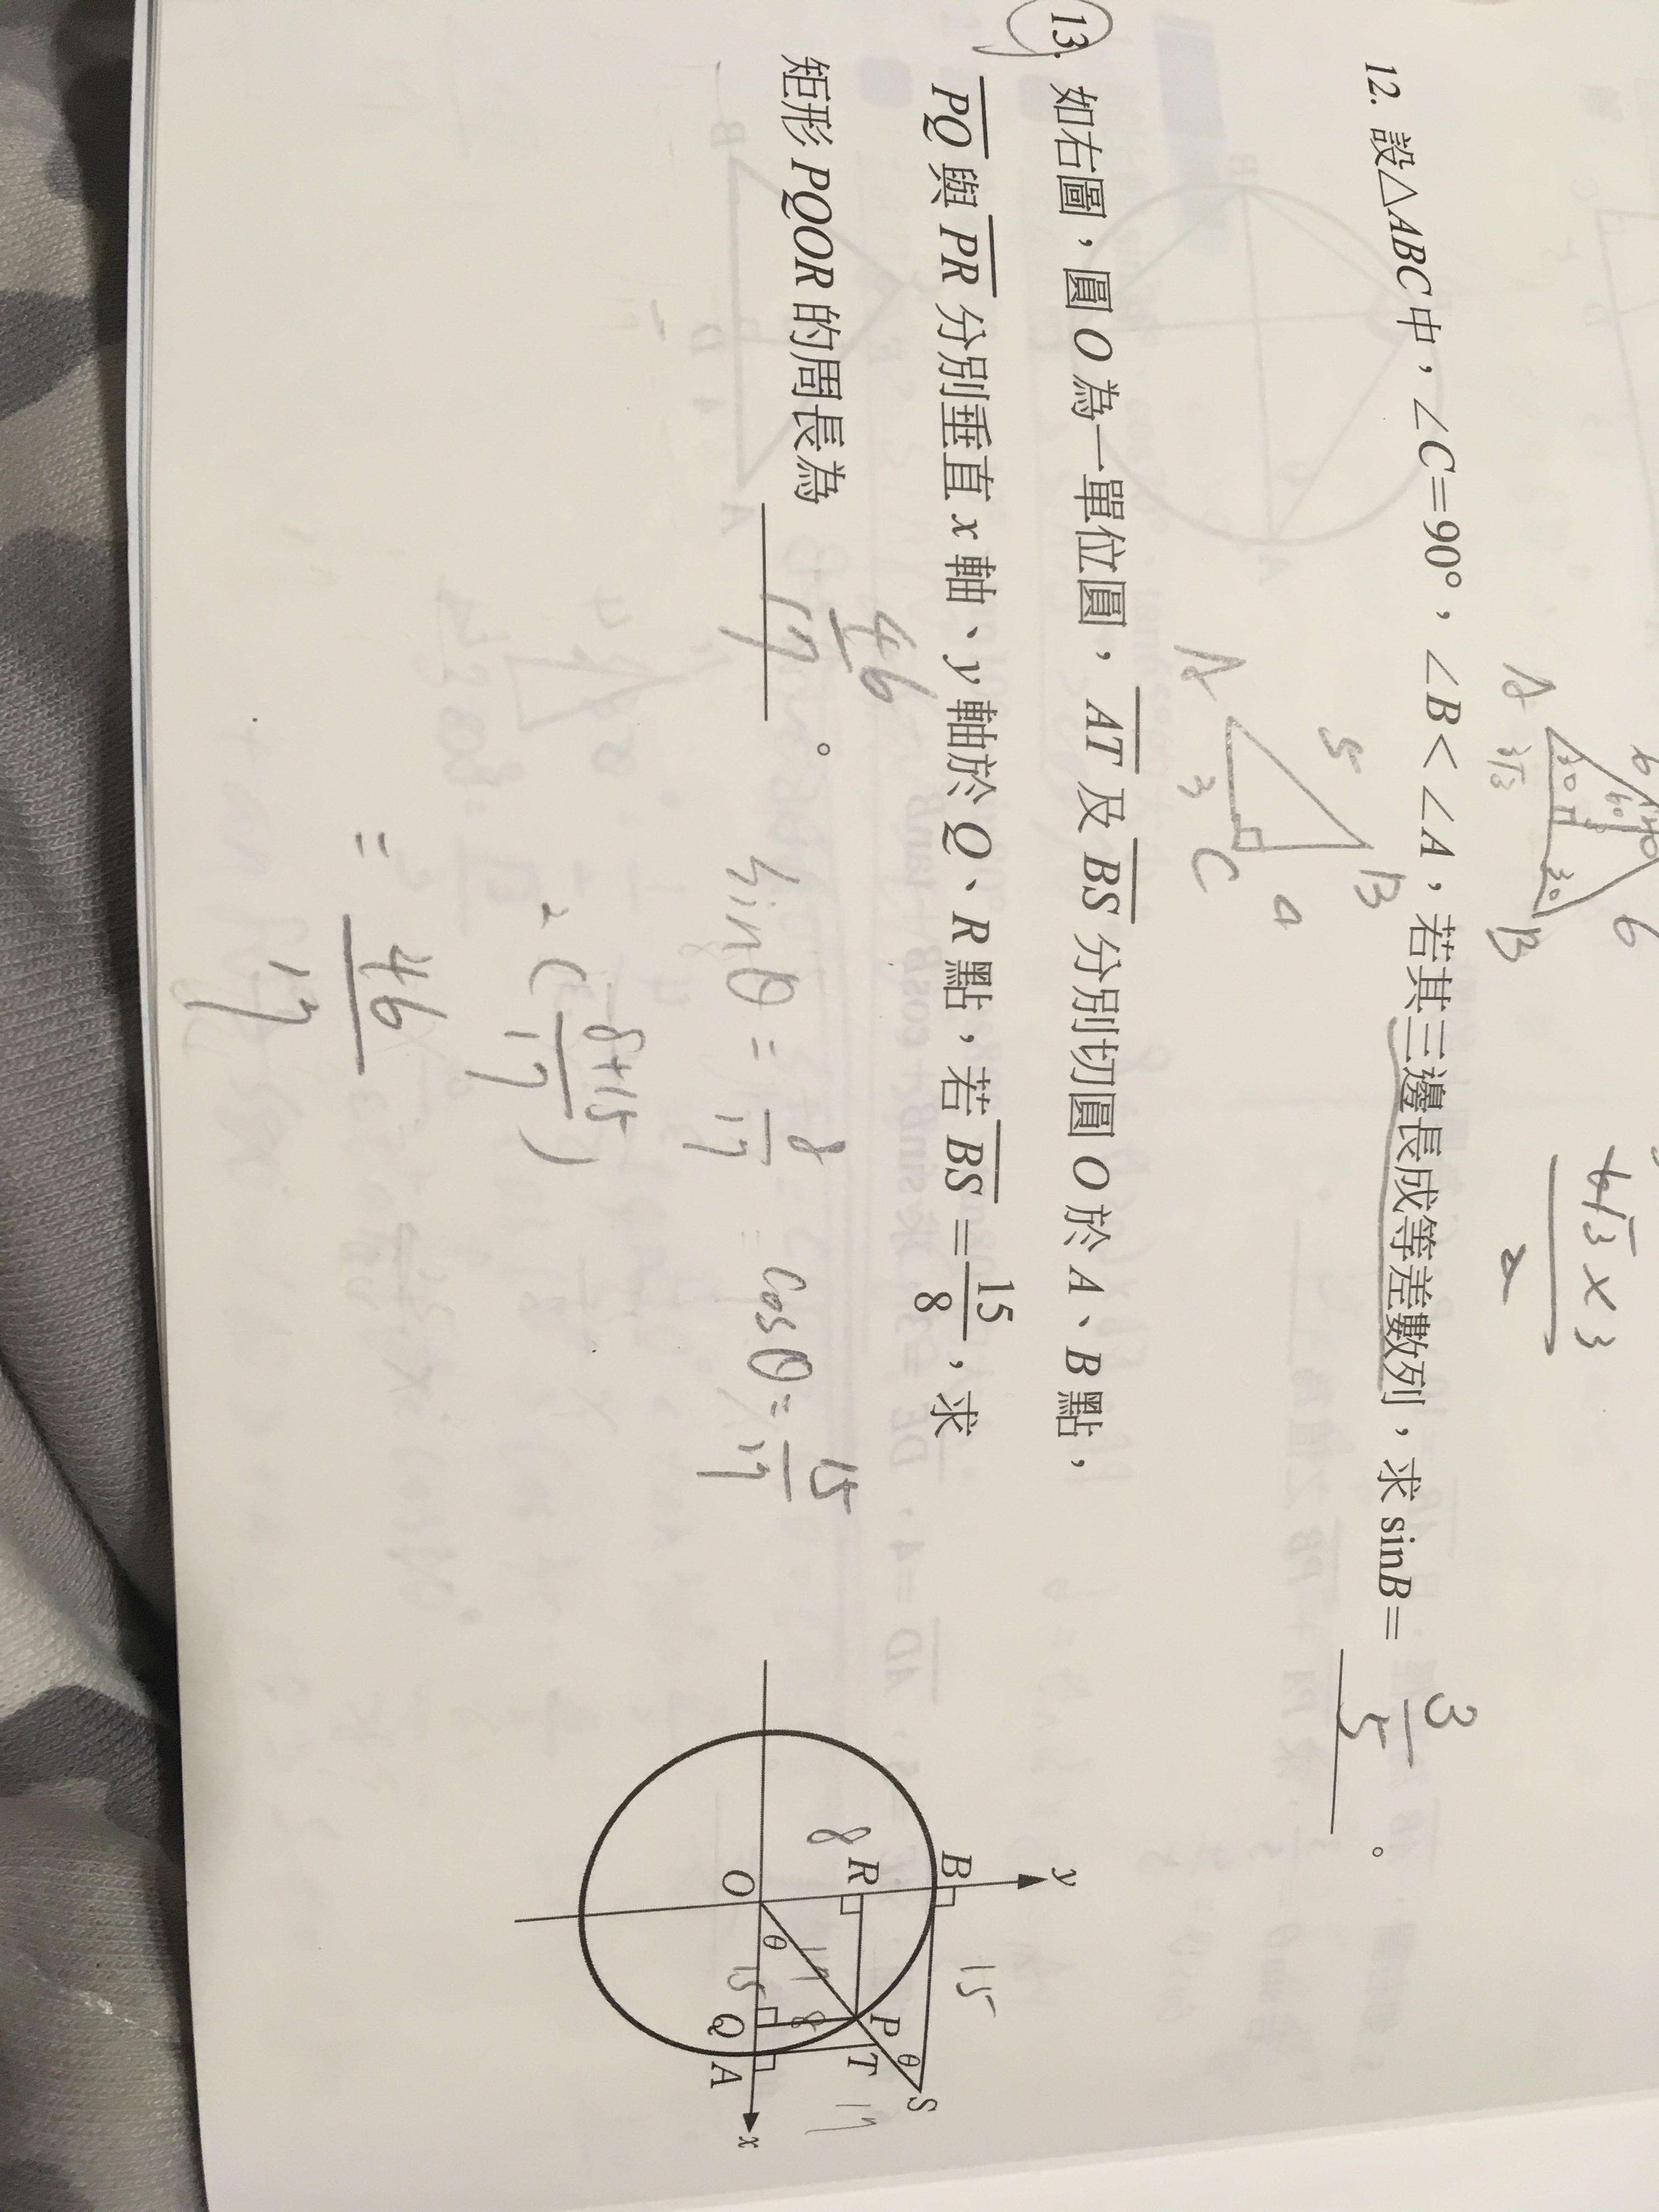 A 6 B 6
30 30
3√3
6√3×3
2
12. 設△ABC中，∠C=90°，∠B<∠A，若其三邊長成等差數列，求 sinB= 3/5 。
A 5 B
3 C 4
13. 如右圖，圓 O 為一單位圓，AT 及 BS 分別切圓 O 於 A、B 點，
PQ 與 PR 分別垂直 x 軸、y 軸於 Q、R 點，若 BS = 15/8，求
矩形 PQOR 的周長為 46/17 。
sinθ = 8/17 cosθ = 15/17
2(8+15/17)
= 46/17
y
B 15 S
8 R P θ T 17
17 8
O θ 15 Q A x